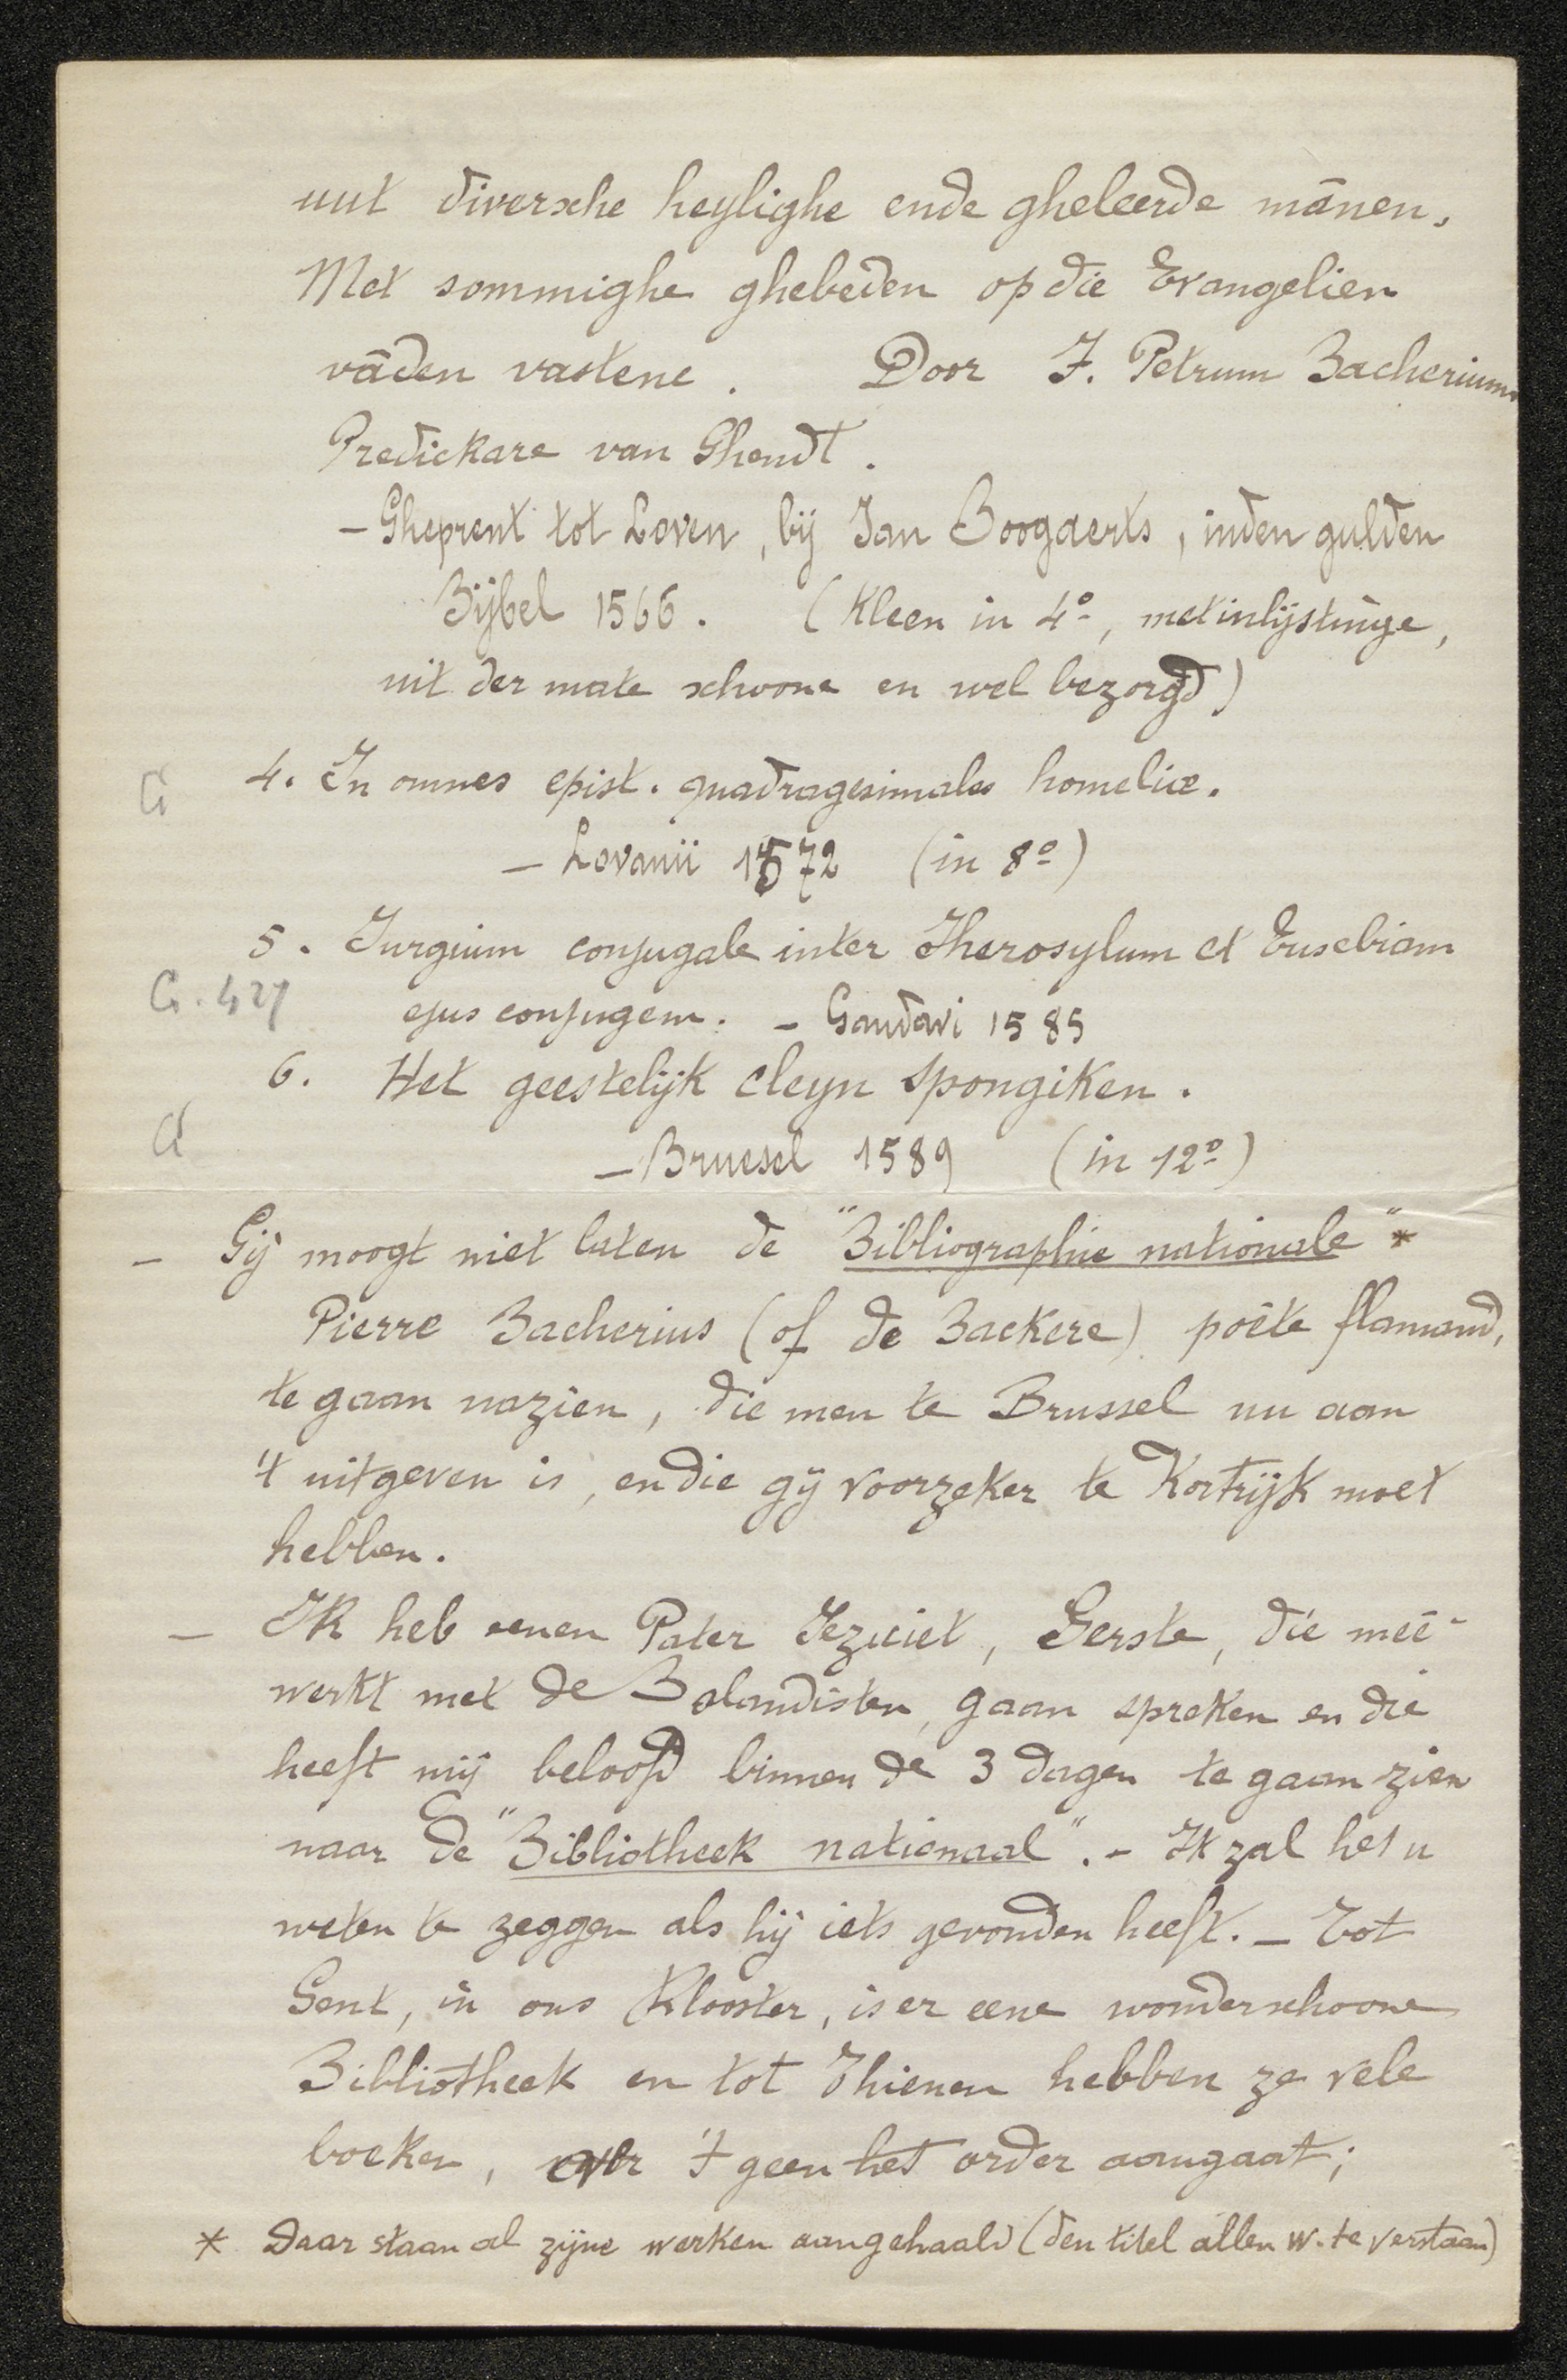 uut diversche heylighe ende gheleerde mānen.
Met sommighe ghebeden op die Evangelien
vāden vastene. Door F. Petrum Bacherium
Predickare van Ghendt.
- Gheprent tot Loven, bij Jan Boogaerts, inden gulden
Bijbel 1566. (Kleen in 4º, met inlijstinge,
uit der mate schoone en wel bezorgd)
G 4. In omnes epist. quadragesimales homeliæ.
- Lovanii 1572 (in 8º)
5. Jurgium conjugale inter Therosylum et Eusebiam
G. 427 ejus conjugem. - Gandavi 1585
6. Het geestelijk cleyn spongiken.
G - Bruesel 1589 (in 12º)
- Gij moogt niet laten de "Bibliographie nationale" *
Pierre Bacherius (of de Backere) poëte flamand,
te gaan nazien, die men te Brussel nu aan
't uitgeven is, en die gij voorzeker te Kortrijk moet
hebben.
- Ik heb eenen Pater Jezuiet, Gerste, die meê-
werkt met de Bolandisten, gaan spreken en die
heeft mij beloofd binnen de 3 dagen te gaan zien
naar de "Bibliotheek nationaal". - Ik zal het u
weten te zeggen als hij iets gevonden heeft. - Tot
Gent, in ons klooster, is er eene wonderschoone
Bibliotheek en tot Thienen hebben ze vele
boeken, over 't geen het order aangaat;
* Daar staan al zijne werken aangehaald (den titel allen w. te verstaan)